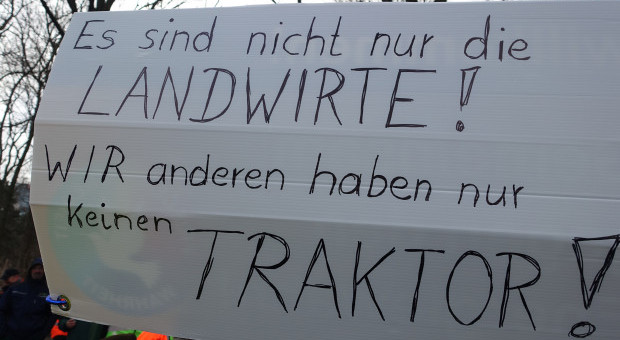 Es sind nicht nur die
LANDWIRTE!
WIR anderen haben nur
keinen TRAKTOR!